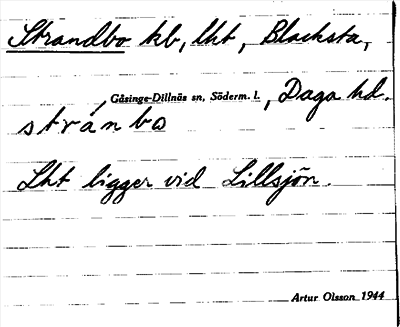 Strandbo kb, lht, Blacksta,
Gåsinge-Dillnäs sn, Söderm. l., Daga hd.
strán bo
Lht ligger vid Lillsjön.
Artur Olsson 1944